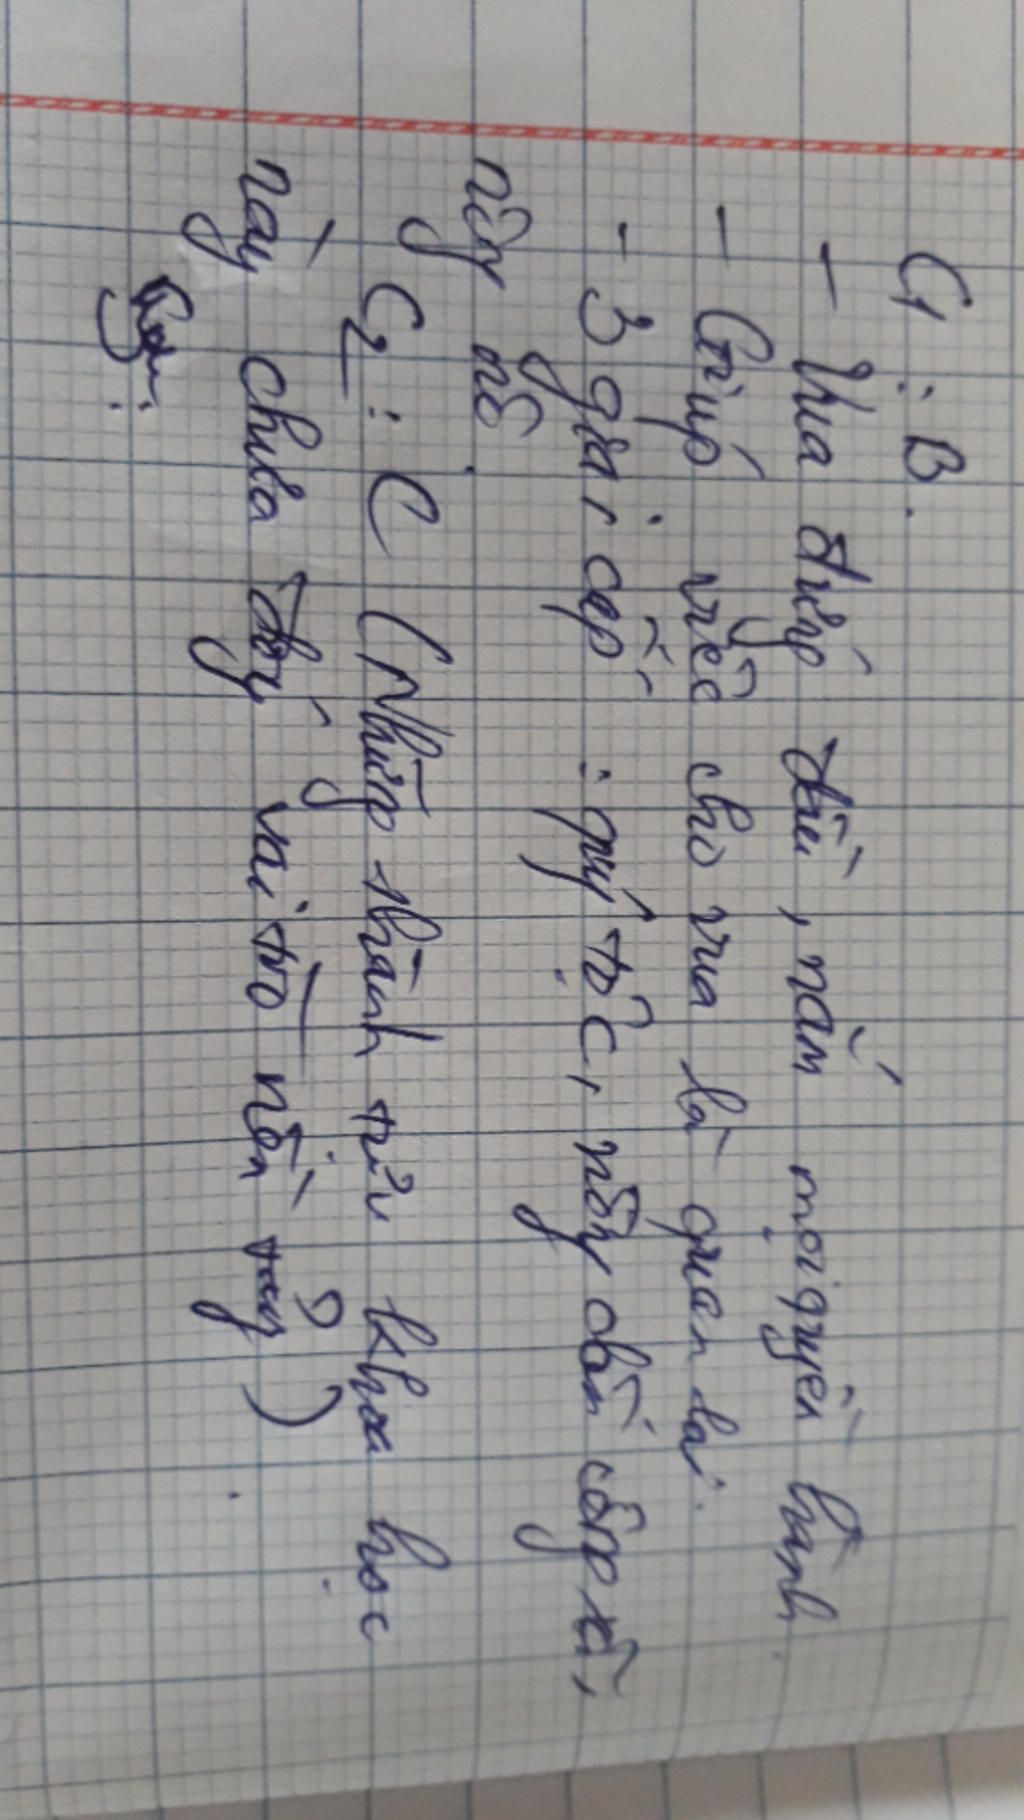 C1 : B.
- Vua đứng đầu, nắm mọi quyền hành
- Giúp việc cho vua là quan lại.
- 3 giai cấp : quý tộc, nông dân công xã,
nông nô
C2 : C (Những thành tựu khoa học
này chưa thấy vai trò nền tảng)